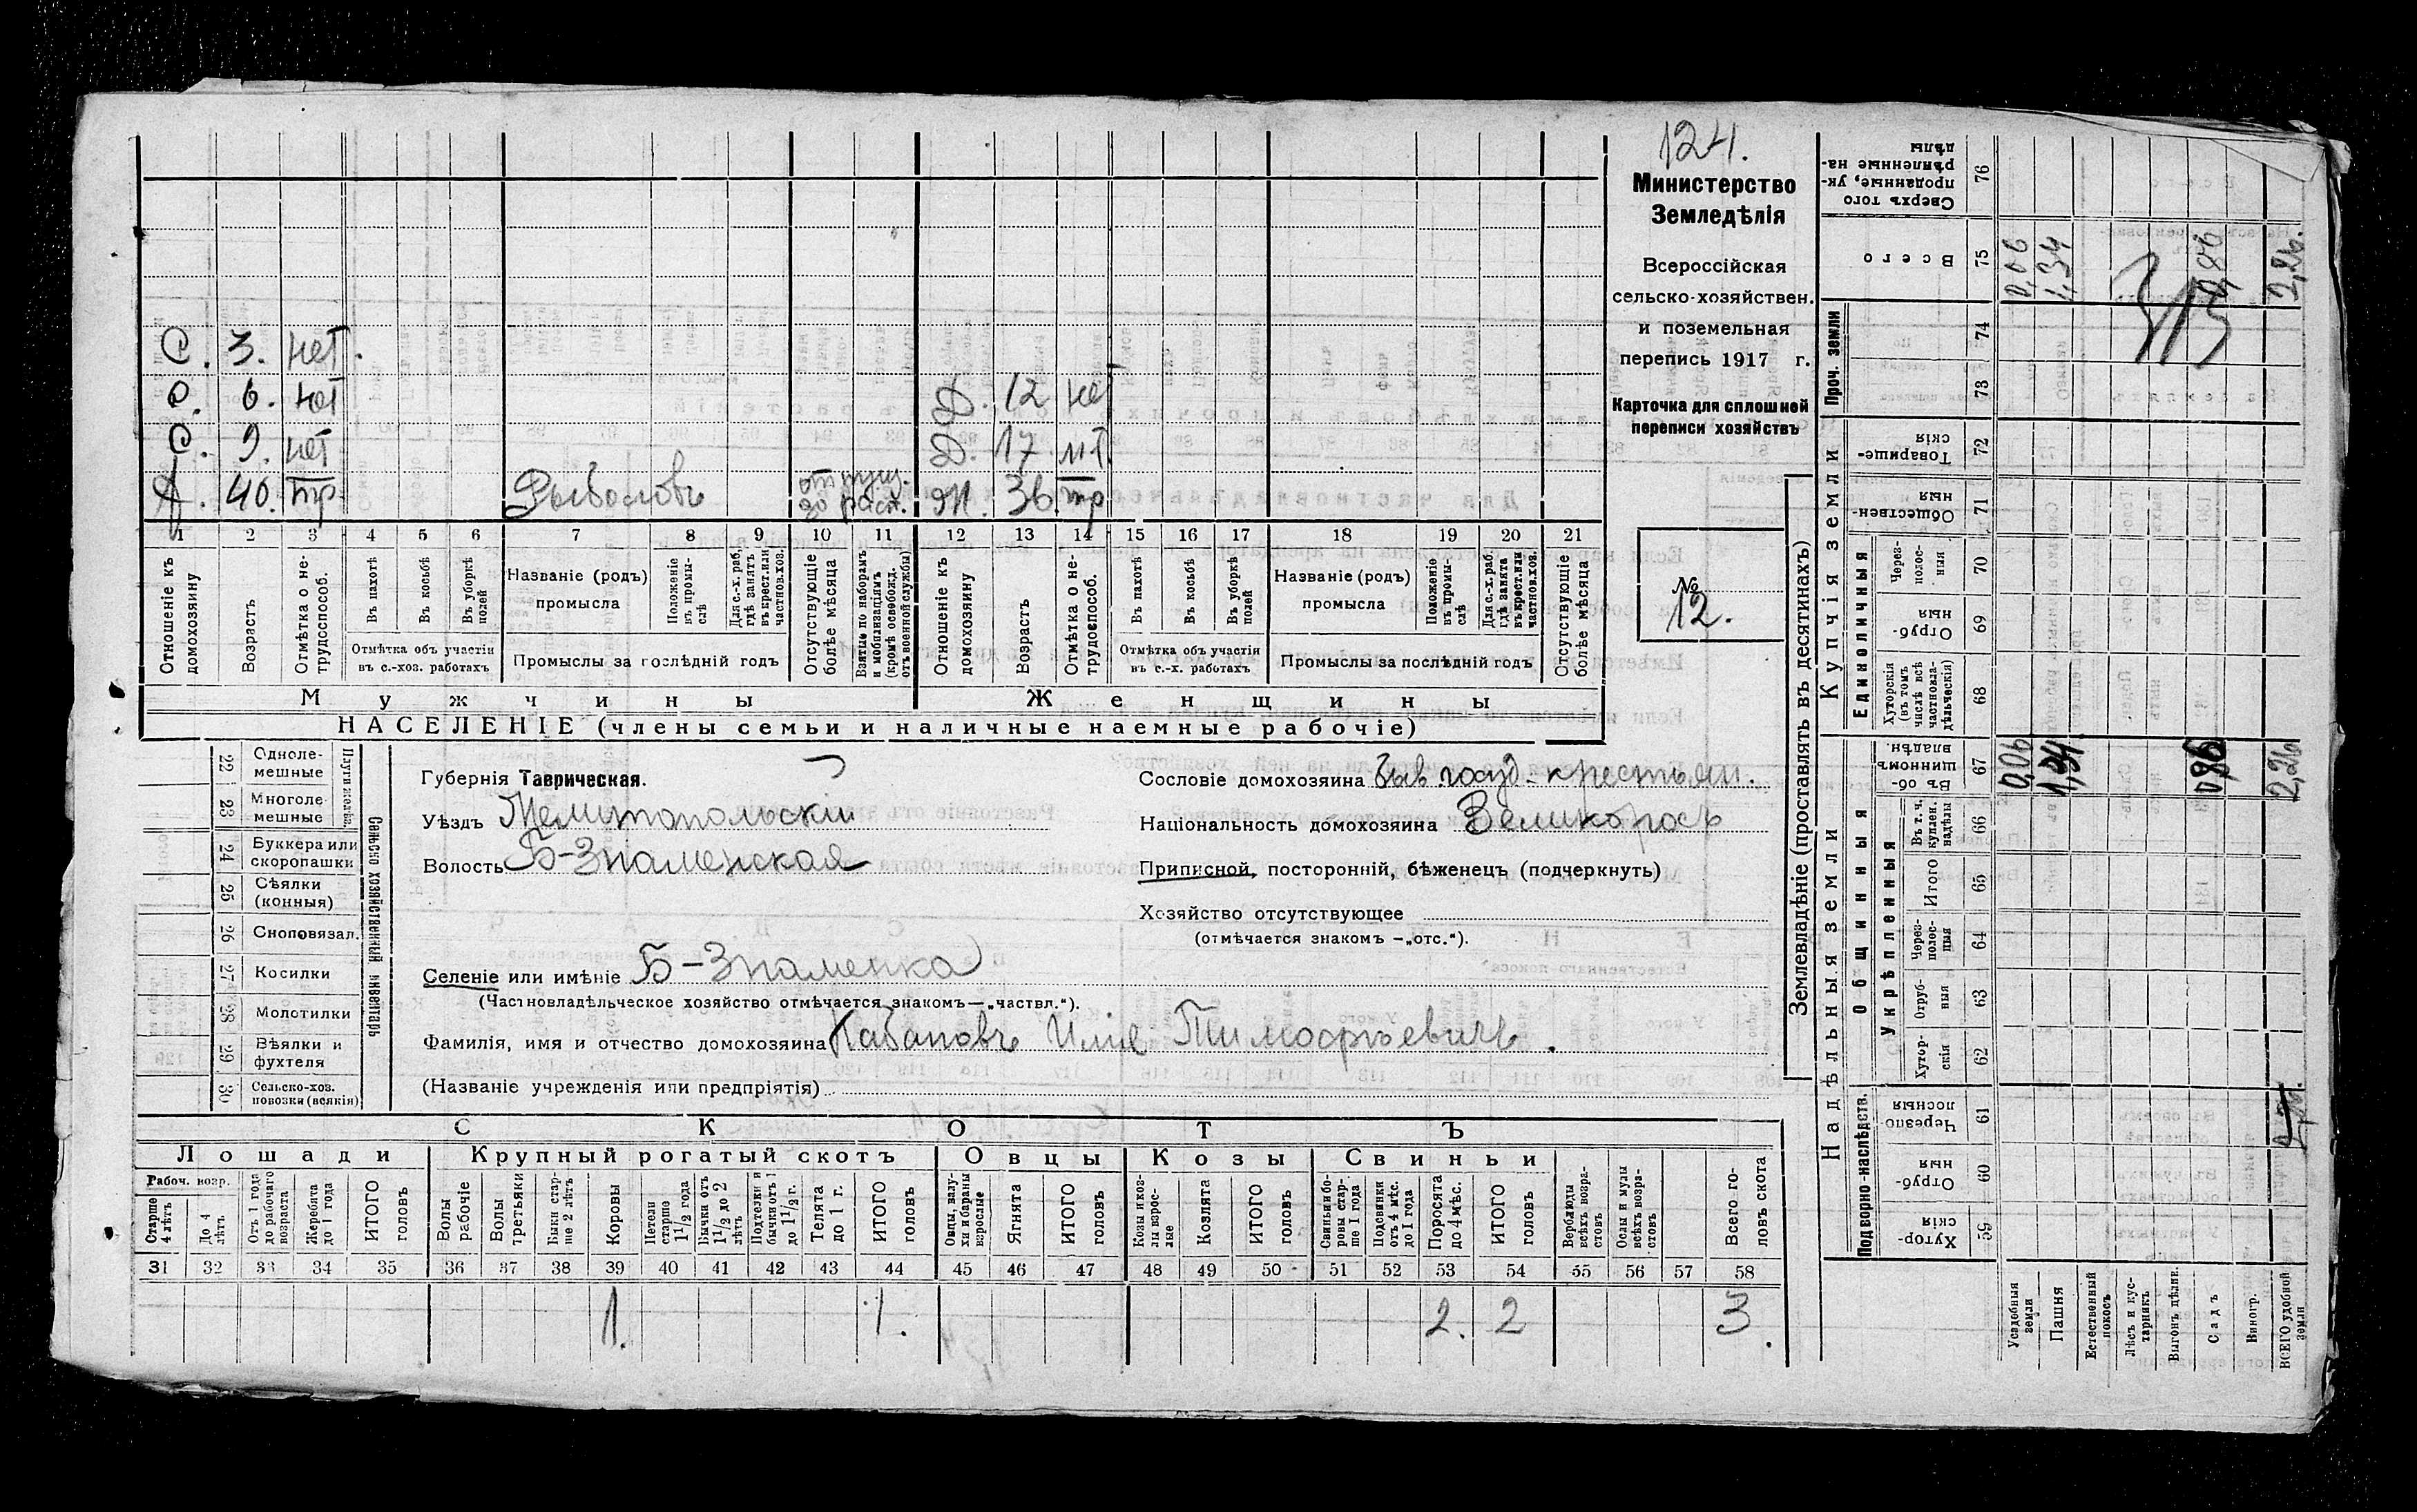 124.
Министерство
Земледѣлія
Всероссійская
сельско-хозяйствен.
и поземельная
перепись 1917 г.
Карточка для сплошной
переписи хозяйствъ
№
12.
С. 3. нет.
С. 6. нет Д. 12 нет
С. 9. нет Д. 17 нт.
40. тр. Рыболовъ отпущ. Ж. 36. тр
1 2 3 4 5 6 7 8 9 10 11 12 13 14 15 16 17 18 19 20 21
Отношеніе къ домохозяину
Возрастъ
Отмѣтка о не-трудоспособ.
Въ пахотѣ
Въ косьбѣ
Въ уборкѣ полей
Отмѣтка объ участіи въ с.-хоз. работахъ
Названіе (родъ) промысла
Положеніе въ промы-слѣ
Для с.-х. раб, гдѣ занятъ въ крест. или частнов. хоз.
Промыслы за послѣдній годъ
Отсутствующіе болѣе мѣсяца
Взятые по наборамъ и мобилизаціямъ (кромѣ освобожд. отъ военной службы)
Отношеніе къ домохозяину
Возрастъ
Отмѣтка о не-трудоспособ.
Въ пахотѣ
Въ косьбѣ
Въ уборкѣ полей
Отмѣтка объ участіи въ с.-х. работахъ
Названіе (родъ) промысла
Положеніе въ промы-слѣ
Для с.-х. раб. гдѣ занята въ крест. или частнов. хоз.
Промыслы за послѣдній годъ
Отсутствующіе болѣе мѣсяца
Мужчины Женщины
НАСЕЛЕНІЕ (члены семьи и наличные наемные рабочіе)
22 Одноле-мешные
23 Многоле мешные
24 Буккера или скоропашки
25 Сѣялки (конныя)
26 Сноповязал.
27 Косилки
28 Молотилки
29 Вѣялки и фухтеля
30 Сельско-хоз. повозки (всякія)
Сельско хозяйственный инвентарь
Губернія Таврическая.
Уѣздъ Мелитопольскій
Волость Б-Знаменская
Селеніе или имѣніе Б-Знаменка
(Частновладѣльческое хозяйство отмѣчается знакомъ—„частвл.“).
Фамилія, имя и отчество домохозяина Кабановъ Илія Тимофѣевичъ.
(Названіе учрежденія или предпріятія)
Сословіе домохозяина быв. госуд.-крестьян.
Національность домохозяина Великоросъ
Приписной, посторонній, бѣженецъ (подчеркнуть)
Хозяйство отсутствующее
(отмѣчается знакомъ —„отс.“).
СКОТЪ
Лошади Крупный рогатый скотъ Овцы Козы Свиньи
Рабоч. возр.
Старше 4 лѣтъ
До 4 лѣтъ
Отъ 1 года до рабочаго возраста
Жеребята до 1 года
ИТОГО головъ
Волы рабочіе
Волы третьяки
Быки стар-ше 2 лѣтъ
Коровы
Нетели старше 1 1/2 года
Бычки отъ 1 1/2 до 2 лѣтъ
Подтелки и бычки отъ 1 до 1 1/2 г.
Телята до 1 г.
ИТОГО головъ
Овцы, валу-хи и бараны взрослые
Ягнята
ИТОГО головъ
Козы и коз-лы взрос-лые
Козлята
ИТОГО головъ
Свиньи и бо-ровы стар-ше 1 года
Подсвинки отъ 4 мѣс. до 1 года
Поросята до 4 мѣс.
ИТОГО головъ
Верблюды всѣхъ возра-стовъ
Ослы и мулы всѣхъ возра-стовъ
Всего го-ловъ скота
31 32 33 34 35 36 37 38 39 40 41 42 43 44 45 46 47 48 49 50 51 52 53 54 55 56 57 58
1. 1. 2. 2 3.
Землевладѣніе (проставлять въ десятинахъ)
Купчія земли
Надѣльныя земли
Проч. земли
Единоличныя
Общинныя
Укрѣпленныя
Подворно-наслѣдств.
Сверхъ того проданные, ук-рѣпленные на-дѣлы 76
Всего 75 0,06 1,34 0,86 2,26.
313
74
73
Товарище-скія 72
Обществен-ныя 71
Через-полос-ныя 70
Отруб-ныя 69
Хуторскія (въ томъ числѣ всѣ частновла-дѣльческія) 68
Въ об-щинномъ владѣн. 67 0,06 1,34 0,86 2,26
Въ т. ч. куплен. надѣлы 66
Итого 65
Через-полос-ныя 64
Отруб-ныя 63
Хутор-скія 62
Черезпо лосныя 61
Отруб-ныя 60
Хутор-скія 59
Усадебныя земли
Пашня
Естественный покосъ
Лѣсъ и кус-тарникъ
Выгонъ дѣлян.
Садъ
Виногр.
ВСЕГО удобной земли